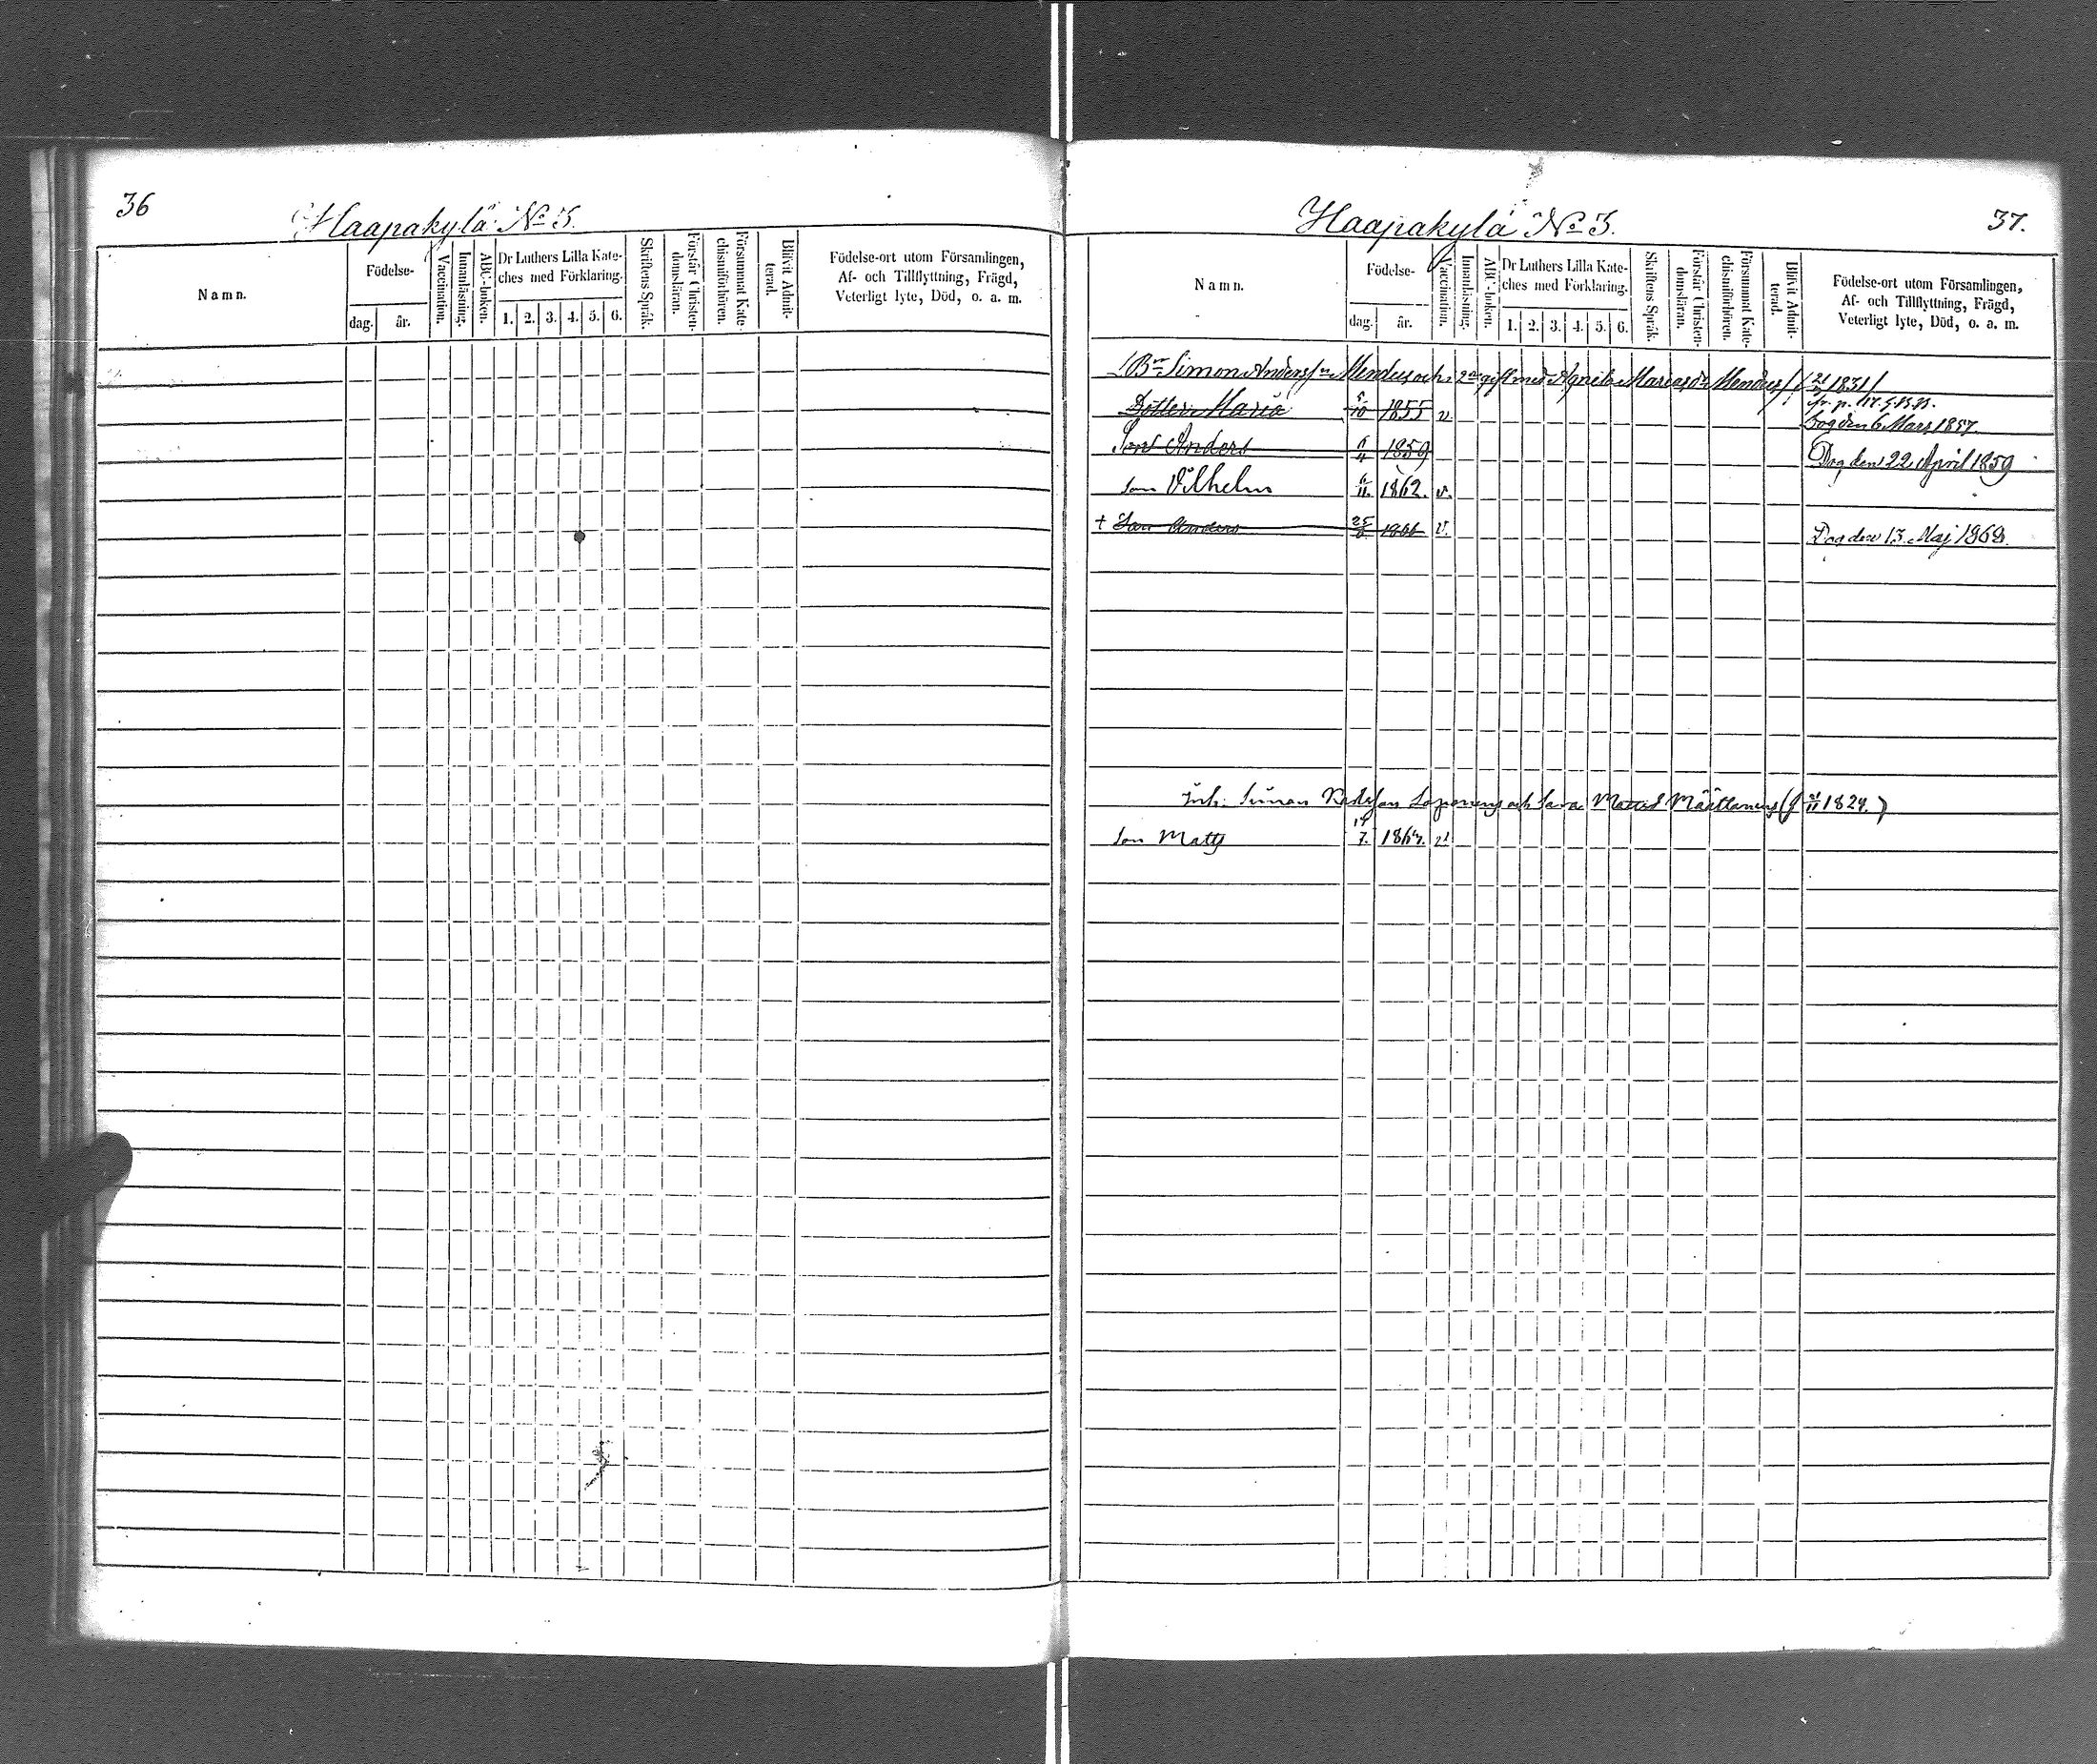 36
Haapakylä No 3.
Namn.
Födelse-
dag.
år.
Vaccination.
Innanläsning.
ABC-boken.
Dr Luthers Lilla Kate-
ches med Förklaring.
1. 2. 3. 4. 5. 6.
Skriftens Språk.
Förstår Christen-
domsläran.
Försummat Kate-
chismiförhören.
Blifvit Admit-
terad.
Födelse-ort utom Församlingen,
Af- och Tillflyttning, Frägd,
Veterligt lyte, Död, o. a. m.
Haapakylä No 3.
37.
Namn.
Födelse-
dag.
år.
Vaccination.
Innanläsning.
ABC-boken.
Dr Luthers Lilla Kate-
ches med Förklaring.
1. 2. 3. 4. 5. 6.
Skriftens Språk.
Förstår Christen-
domsläran.
Försummat Kate-
chismiförhören.
Blifvit Admit-
terad.
Födelse-ort utom Församlingen,
Af- och Tillflyttning, Frägd,
Veterligt lyte, Död, o. a. m.
Bn Simon Anders/n Mendus och i 2a gift med Agneta Mariasdr Mendus 1831/
Dotter Maria 5/10 1855 v. Dog den 6 Mars 1857
Son Anders 6/4 1859 Dog den 22 April 1859
Son Vilhelm 6/11. 1862. v.
+ Son Anders 1866 v. Dog den 13 Maj 1868.
Inh. Simon och Sara Mattsd Määttanens 1829.)
Son Matts 14/7. v.